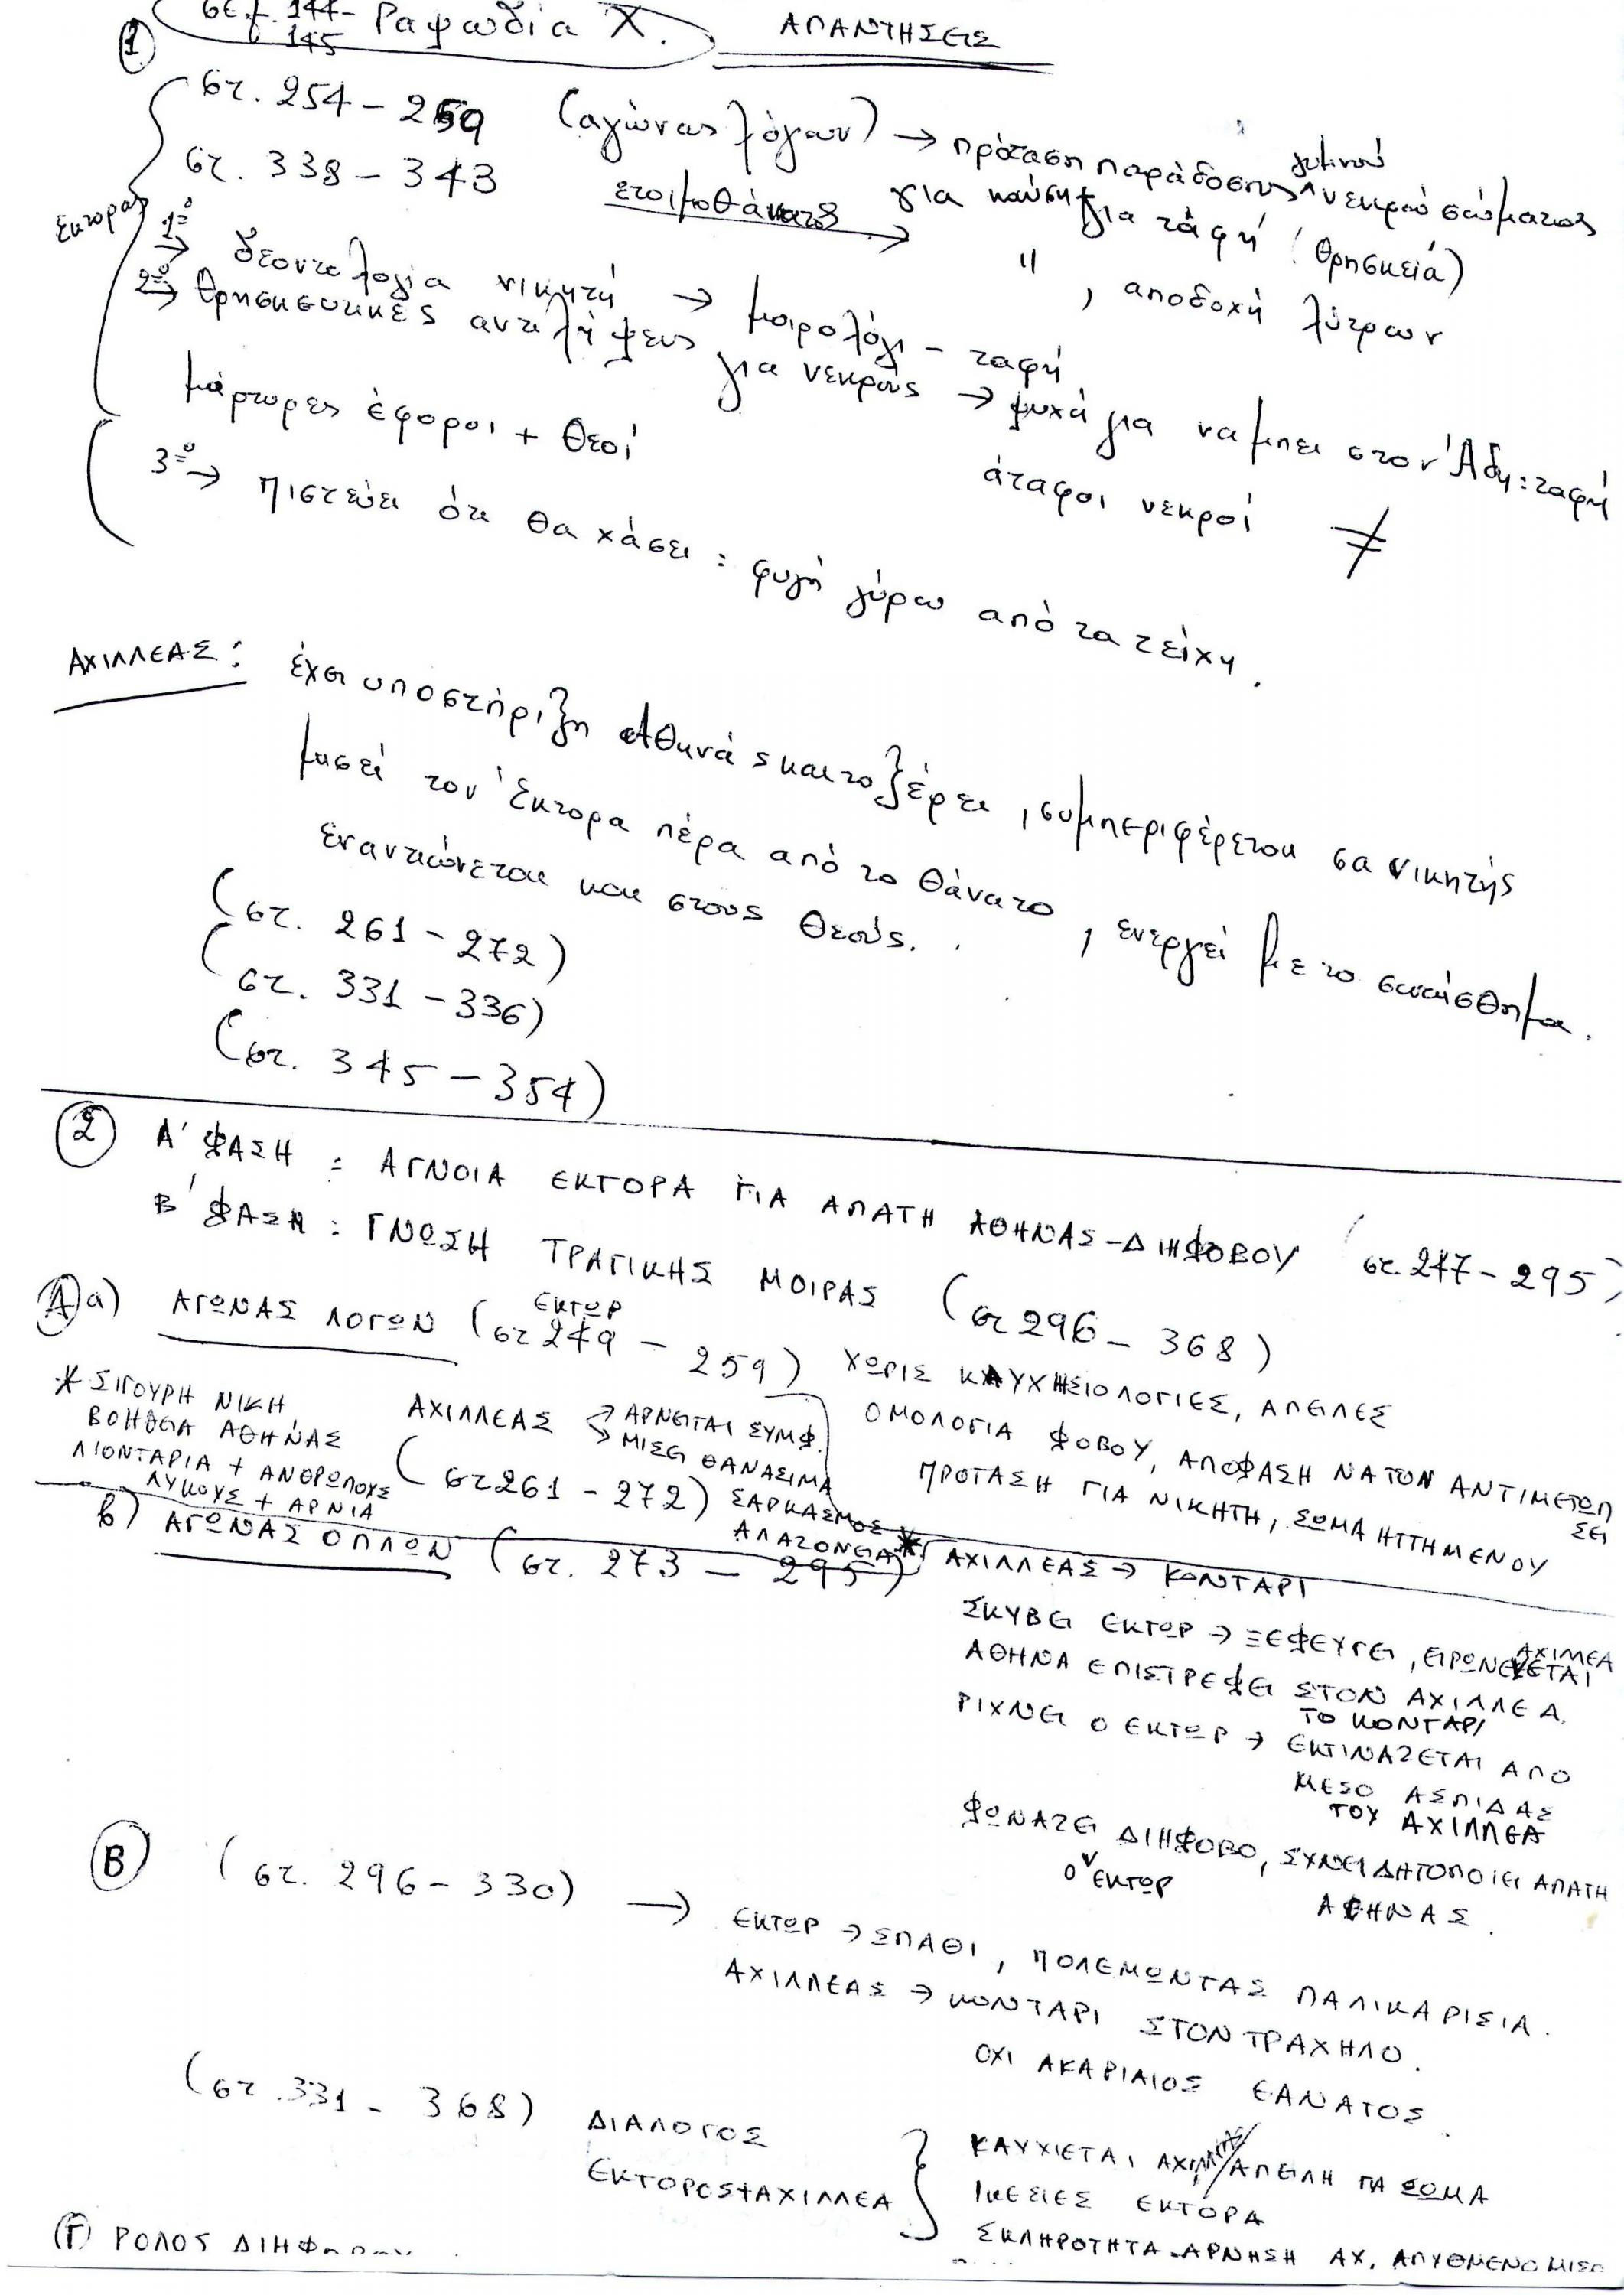 σελ. 144-145 Ραψωδία Χ. ΑΠΑΝΤΗΣΕΙΣ
1
στ. 254-259 (αγώνας λόγων) → πρόταση παράδοσης γυμνού νεκρού σώματος
για καύση για ταφή (θρησκεία)
στ. 338-343 ετοιμοθάνατος → " , αποδοχή λύτρων
Έκτορας
1ο → δεοντολογία νικητή → μοιρολόγι - ταφή
2ο → θρησκευτικές αντιλήψεις για νεκρούς → ψυχή για να μπει στον Άδη: ταφή
μάρτυρες έφοροι + θεοί
άταφοι νεκροί ≠
3ο → πιστεύει ότι θα χάσει : φυγή γύρω από τα τείχη.
ΑΧΙΛΛΕΑΣ: έχει υποστήριξη Αθηνάς και το ξέρει, συμπεριφέρεται σα νικητής
μισεί τον Έκτορα πέρα από το θάνατο, ενεργεί με το συναίσθημα.
εναντιώνεται και στους θεούς.
(στ. 261-272)
(στ. 331-336)
(στ. 345-354)
2 Α' ΦΑΣΗ : ΑΓΝΟΙΑ ΕΚΤΟΡΑ ΓΙΑ ΑΠΑΤΗ ΑΘΗΝΑΣ-ΔΗΙΦΟΒΟΥ (στ. 247-295)
Β' ΦΑΣΗ : ΓΝΩΣΗ ΤΡΑΓΙΚΗΣ ΜΟΙΡΑΣ (στ 296-368)
Α α) ΑΓΩΝΑΣ ΛΟΓΩΝ (στ 249 - 259) ΕΚΤΩΡ
ΧΩΡΙΣ ΚΑΥΧΗΣΙΟΛΟΓΙΕΣ, ΑΠΕΙΛΕΣ
ΟΜΟΛΟΓΙΑ ΦΟΒΟΥ, ΑΠΟΦΑΣΗ ΝΑ ΤΟΝ ΑΝΤΙΜΕΤΩΠΙΣΕΙ
ΠΡΟΤΑΣΗ ΓΙΑ ΝΙΚΗΤΗ, ΣΩΜΑ ΗΤΤΗΜΕΝΟΥ
ΑΧΙΛΛΕΑΣ → ΑΡΝΕΙΤΑΙ ΣΥΜΦ.
→ ΜΙΣΕΙ ΘΑΝΑΣΙΜΑ
(στ 261-272) ΣΑΡΚΑΣΜΟΣ
ΑΛΑΖΟΝΕΙΑ *
* ΣΙΓΟΥΡΗ ΝΙΚΗ
ΒΟΗΘΕΙΑ ΑΘΗΝΑΣ
ΛΙΟΝΤΑΡΙΑ + ΑΝΘΡΩΠΟΥΣ
ΛΥΚΟΥΣ + ΑΡΝΙΑ
β) ΑΓΩΝΑΣ ΟΠΛΩΝ (στ. 273 - 295)
ΑΧΙΛΛΕΑΣ → ΚΟΝΤΑΡΙ
ΣΚΥΒΕΙ ΕΚΤΩΡ → ΞΕΦΕΥΓΕΙ, ΕΙΡΩΝΕΥΕΤΑΙ ΑΧΙΛΛΕΑ
ΑΘΗΝΑ ΕΠΙΣΤΡΕΦΕΙ ΣΤΟΝ ΑΧΙΛΛΕΑ
ΤΟ ΚΟΝΤΑΡΙ
ΡΙΧΝΕΙ Ο ΕΚΤΩΡ → ΕΚΤΙΝΑΖΕΤΑΙ ΑΠΟ
ΜΕΣΟ ΑΣΠΙΔΑΣ
ΤΟΥ ΑΧΙΛΛΕΑ
ΦΩΝΑΖΕΙ ΔΗΙΦΟΒΟ, ΣΥΝΕΙΔΗΤΟΠΟΙΕΙ ΑΠΑΤΗ
Ο ΕΚΤΩΡ
ΑΘΗΝΑΣ.
Β (στ. 296-330) → ΕΚΤΩΡ → ΣΠΑΘΙ, ΠΟΛΕΜΩΝΤΑΣ ΠΑΛΙΚΑΡΙΣΙΑ.
ΑΧΙΛΛΕΑΣ → ΚΟΝΤΑΡΙ ΣΤΟΝ ΤΡΑΧΗΛΟ.
ΟΧΙ ΑΚΑΡΙΑΙΟΣ ΘΑΝΑΤΟΣ.
(στ. 331 - 368) ΔΙΑΛΟΓΟΣ
ΕΚΤΟΡΟΣ+ΑΧΙΛΛΕΑ
ΚΑΥΧΙΕΤΑΙ ΑΧΙΛΛΕΑΣ/ΑΠΕΙΛΗ ΓΙΑ ΣΩΜΑ
ΙΚΕΣΙΕΣ ΕΚΤΟΡΑ
ΣΚΛΗΡΟΤΗΤΑ-ΑΡΝΗΣΗ ΑΧ. ΑΠΥΘΜΕΝΟ ΜΙΣΟ
Γ ΡΟΛΟΣ ΔΗΙΦΟΒΟΥ